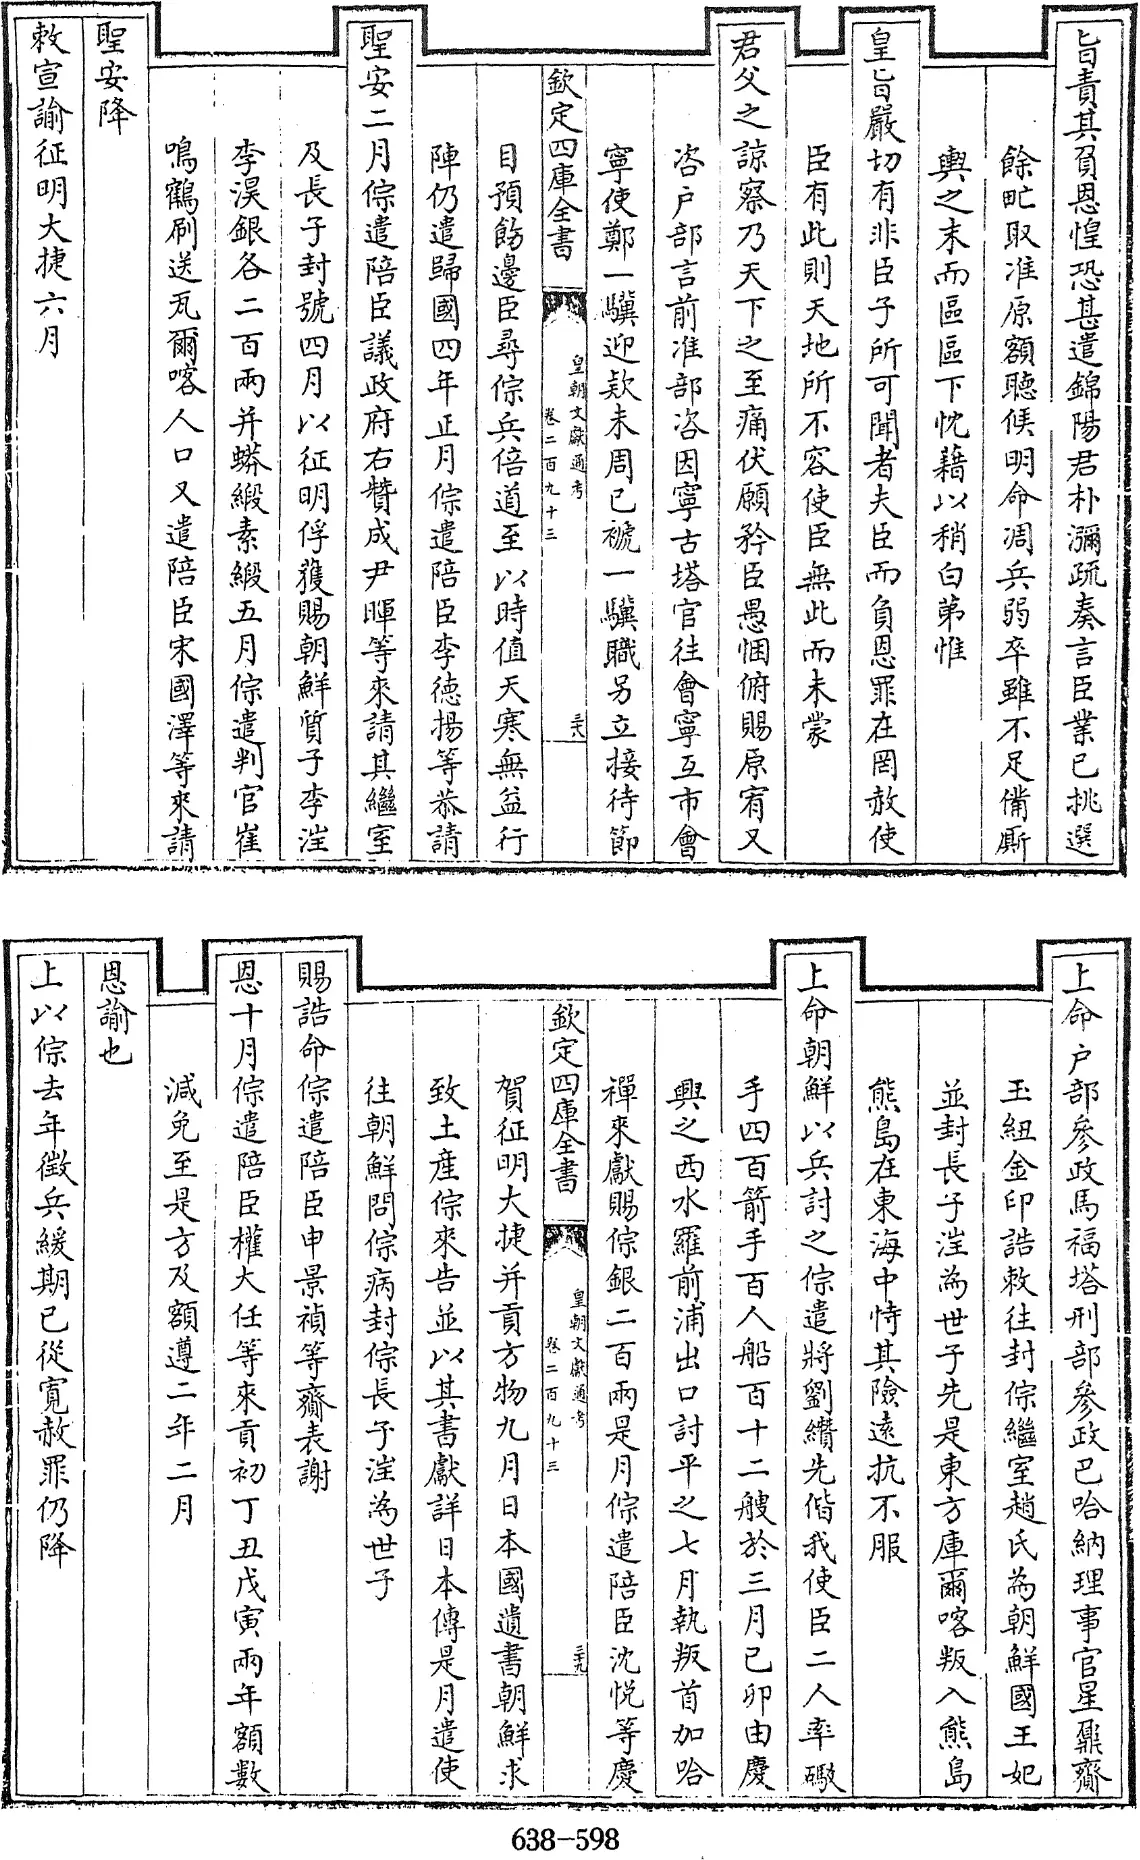 旨責其負恩惶恐甚遣錦陽君朴瀰疏奏言臣業已挑選
餘甿取准原額聽候明命凋兵弱卒雖不足備厮
輿之末而區區下忱藉以稍白第惟
皇旨嚴切有非臣子所可聞者夫臣而負恩罪在罔赦使
臣有此則天地所不容使臣無此而未蒙
君父之諒察乃天下之至痛伏願矜臣愚悃俯賜原宥又
咨户部言前准部咨因寧古塔官往會寧互市會
寧使鄭一驥迎欵未周已褫一驥職另立接待節
欽定四庫全書
皇朝文獻通考
卷二百九十三
三八
目預飭邊臣尋倧兵倍道至以時值天寒無益行
陣仍遣歸國四年正月倧遣陪臣李徳揚等恭請
聖安二月倧遣陪臣議政府右贊成尹暉等來請其繼室
及長子封號四月以征明俘獲賜朝鮮質子李𣴴
李淏銀各二百兩并蟒緞素緞五月倧遣判官崔
鳴鶴刷送瓦爾喀人口又遣陪臣宋國澤等來請
聖安降
敕宣諭征明大捷六月
上命户部參政馬福塔刑部參政巴哈納理事官星鼐齎
玉紐金印誥敕往封倧繼室趙氏為朝鮮國王妃
並封長子𣴴為世子先是東方庫爾喀叛入熊島
熊島在東海中恃其險遠抗不服
上命朝鮮以兵討之倧遣將劉纘先偕我使臣二人率礮
手四百箭手百人船百十二艘於三月已卯由慶
興之西水羅前浦出口討平之七月執叛首加哈
禪來獻賜倧銀二百兩是月倧遣陪臣沈悦等慶
欽定四庫全書
皇朝文獻通考
卷二百九十三
三九
賀征明大捷并貢方物九月日本國遺書朝鮮求
致土産倧來告並以其書獻詳日本傳是月遣使
往朝鮮問倧病封倧長子𣴴為世子
賜誥命倧遣陪臣申景禎等齎表謝
恩十月倧遣陪臣權大任等來貢初丁丑戊寅兩年額數
減免至是方及額遵二年二月
恩諭也
上以倧去年徵兵緩期已從寛赦罪仍降
638-598